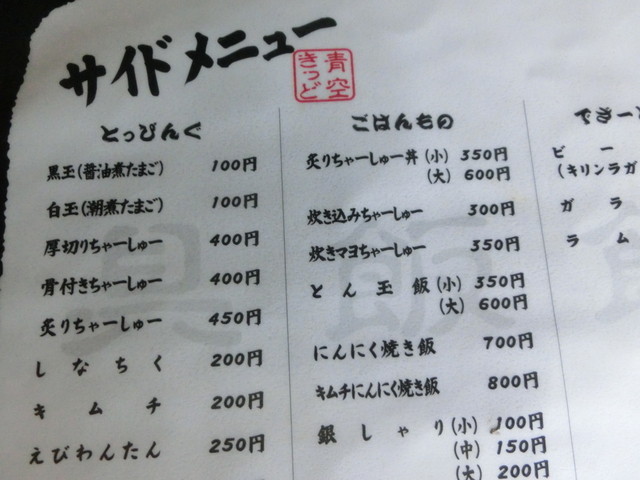 サイドメニュー
青空きっど
とっぴんぐ
黒玉(醤油煮たまご) 100円
白玉(潮煮たまご) 100円
厚切りちゃーしゅー 400円
骨付きちゃーしゅー 400円
炙りちゃーしゅー 450円
しなちく 200円
キムチ 200円
えびわんたん 250円
ごはんもの
炙りちゃーしゅー丼(小) 350円
(大) 600円
炊き込みちゃーしゅー 300円
炊きマヨちゃーしゅー 350円
とん玉飯(小) 350円
(大) 600円
にんにく焼き飯 700円
キムチにんにく焼き飯 800円
銀しゃり(小) 100円
(中) 150円
(大) 200円
でざーと
ビー
(キリンラガ
ガラ
ラム
具
飯